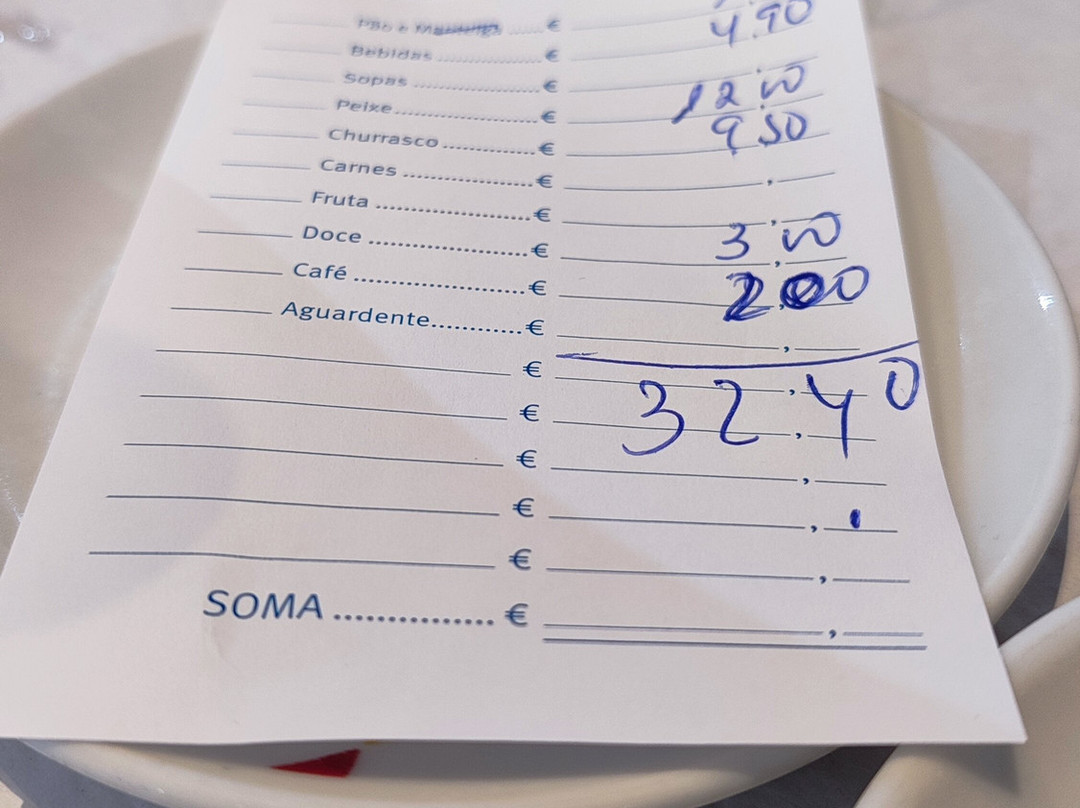 Pão e Manteiga ...... €
Bebidas ............... € 4.90
Sopas .................. €
Peixe .................... € 12.00
Churrasco ............... € 9.50
Carnes .................... € ,
Fruta ........................ € ,
Doce ........................ € 3,00
Café .......................... € 2,00
Aguardente............ € ,
€ ,
€ 32.40
€ ,
€ ,
€ ,
SOMA ............... € ,